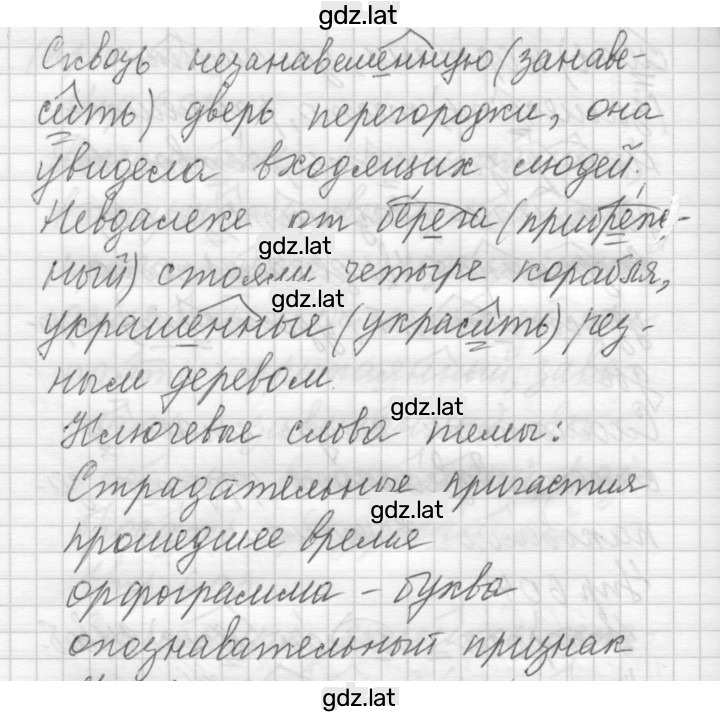 gdz.lat
Сквозь незанавешенную (занаве-
сить) дверь перегородки, она
увидела входящих людей.
Невдалеке от берега (прибреж-
gdz.lat
ный) стояли четыре корабля,
gdz.lat
украшенные (украсить) рез-
ным деревом.
gdz.lat
Ключевые слова темы:
Страдательные причастия
gdz.lat
прошедшее время
орфограмма - буква
опознавательный признак
gdz.lat